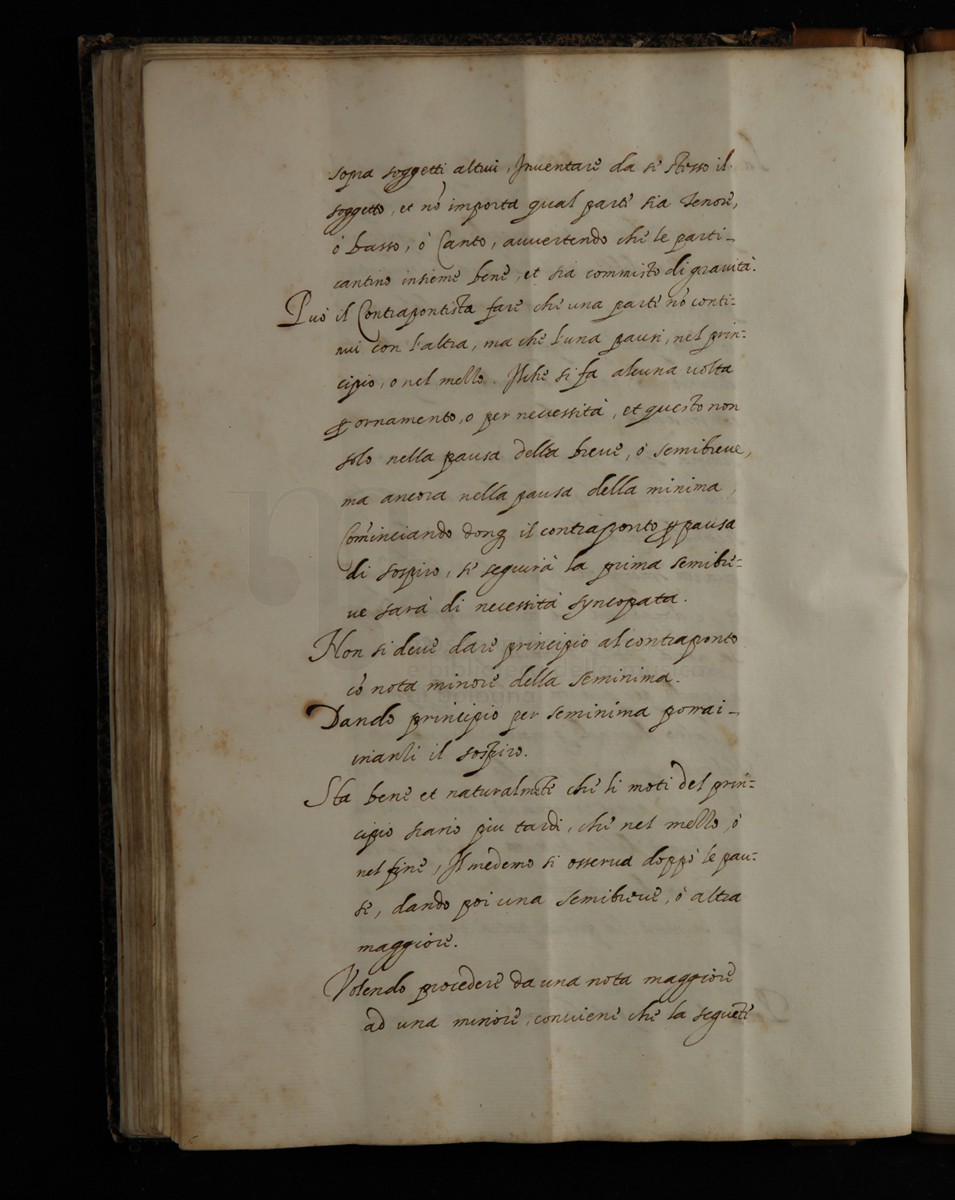 sopra soggetti altrui, Inventare da se stesso il
soggetto, et nō importa qual parte sia Tenore,
ò basso, ò Canto, auuertendo che le parti-
cantino insieme bene, et sia commisto di grauità.
Può il Contrapontista fare che una parte nō conti=
nui con l'altra, ma che l'una pausi, nel prin=
cipio, o nel mezzo. Il che si fa alcuna uolta
ꝑ ornamento, o per necessità, et questo non
solo nella pausa della breue, ò semibreue,
ma ancora nella pausa della minima,
Cominciando donq; il contraponto ꝑ pausa
di sospiro, se seguirà la prima semibre=
ue sarà di necessità syncopata.
Non si deue dare principio al contraponto
cō nota minore della seminima.
Dando principio per seminima porrai-
inanzi il sospiro.
Sta bene et naturalmēte che li moti del prin=
cipio siano piu tardi, che nel mezzo, ò
nel fine, Il medemo si osserua doppò le pau=
se, dando poi una semibreue, ò altra
maggiore.
Volendo procedere da una nota maggiore
ad una minore, conuiene che la seguēte